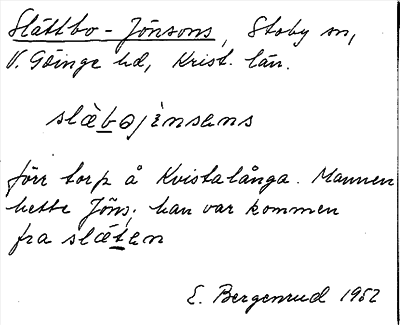 Slättbo-Jönsons, Stoby sn,
V. Göinge hd, Krist. län.
slæ̀bəjènsəns
förr torp å Kvistalånga. Mannen
hette Jöns; han var kommen
fra slæten
E. Bergenrud 1952